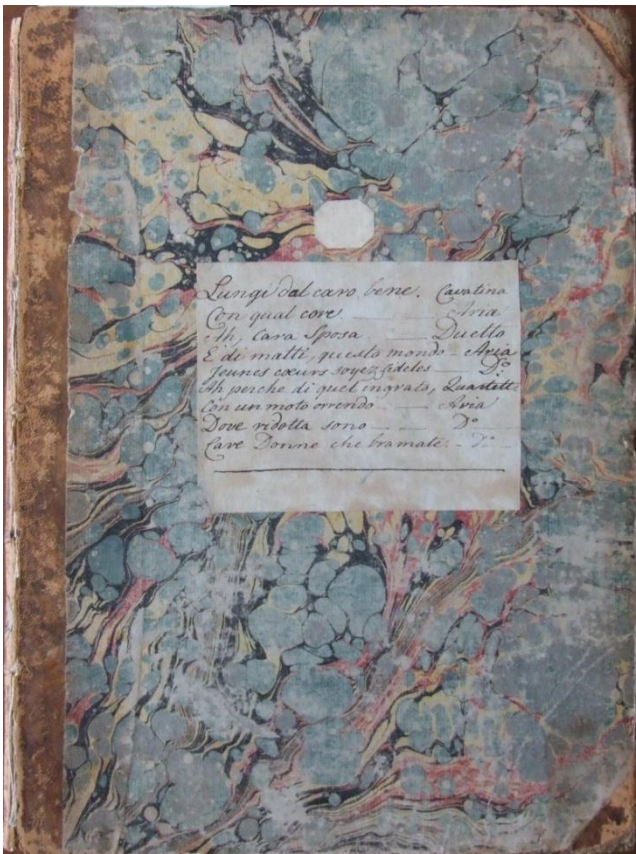 Lungi dal caro bene. Cavatina
Con qual core Aria
Ah, Cara Sposa Duetto
E di matti, questo mondo - Aria
Jeunes cœurs soyez fideles - Do:
Ah perche di quel ingrato, Quartett
Con un moto orrendo Aria
Dove ridotta sono Do
Care Donne che bramate: - do